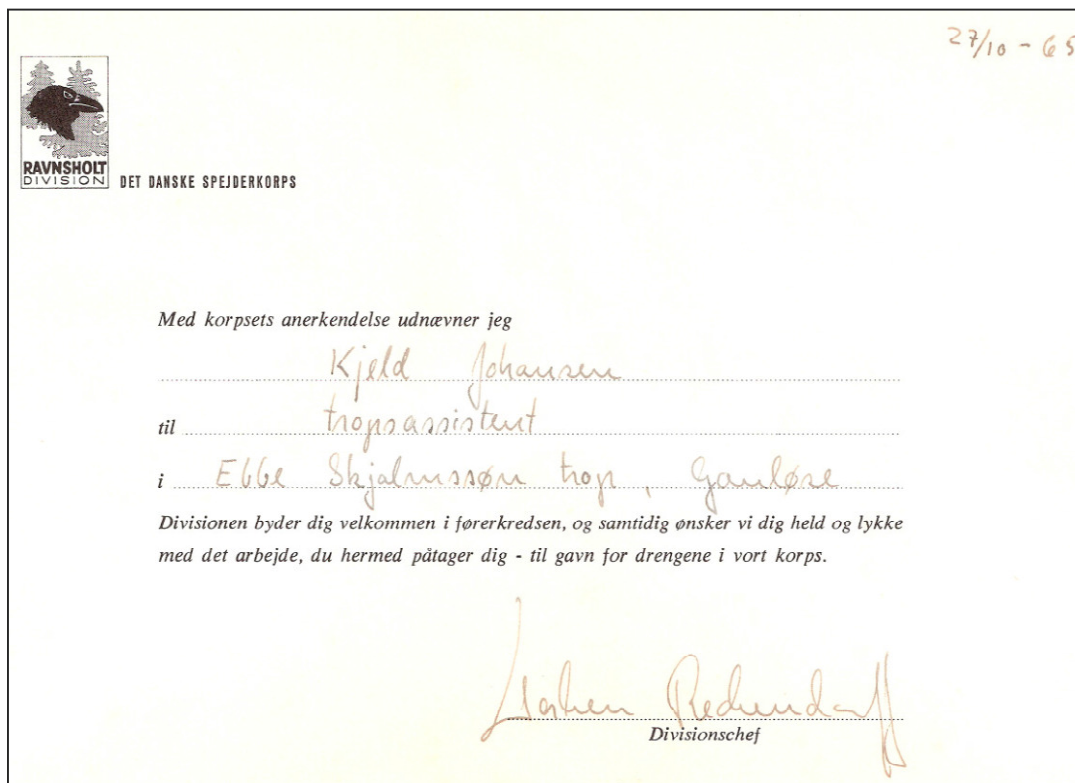 27/10 - 65
RAVNSHOLT
DIVISION
DET DANSKE SPEJDERKORPS
Med korpsets anerkendelse udnævner jeg
Kjeld Johansen
til tropsassistent
i Ebbe Skjalmssøn trop, Ganløse
Divisionen byder dig velkommen i førerkredsen, og samtidig ønsker vi dig held og lykke
med det arbejde, du hermed påtager dig - til gavn for drengene i vort korps.
Divisionschef